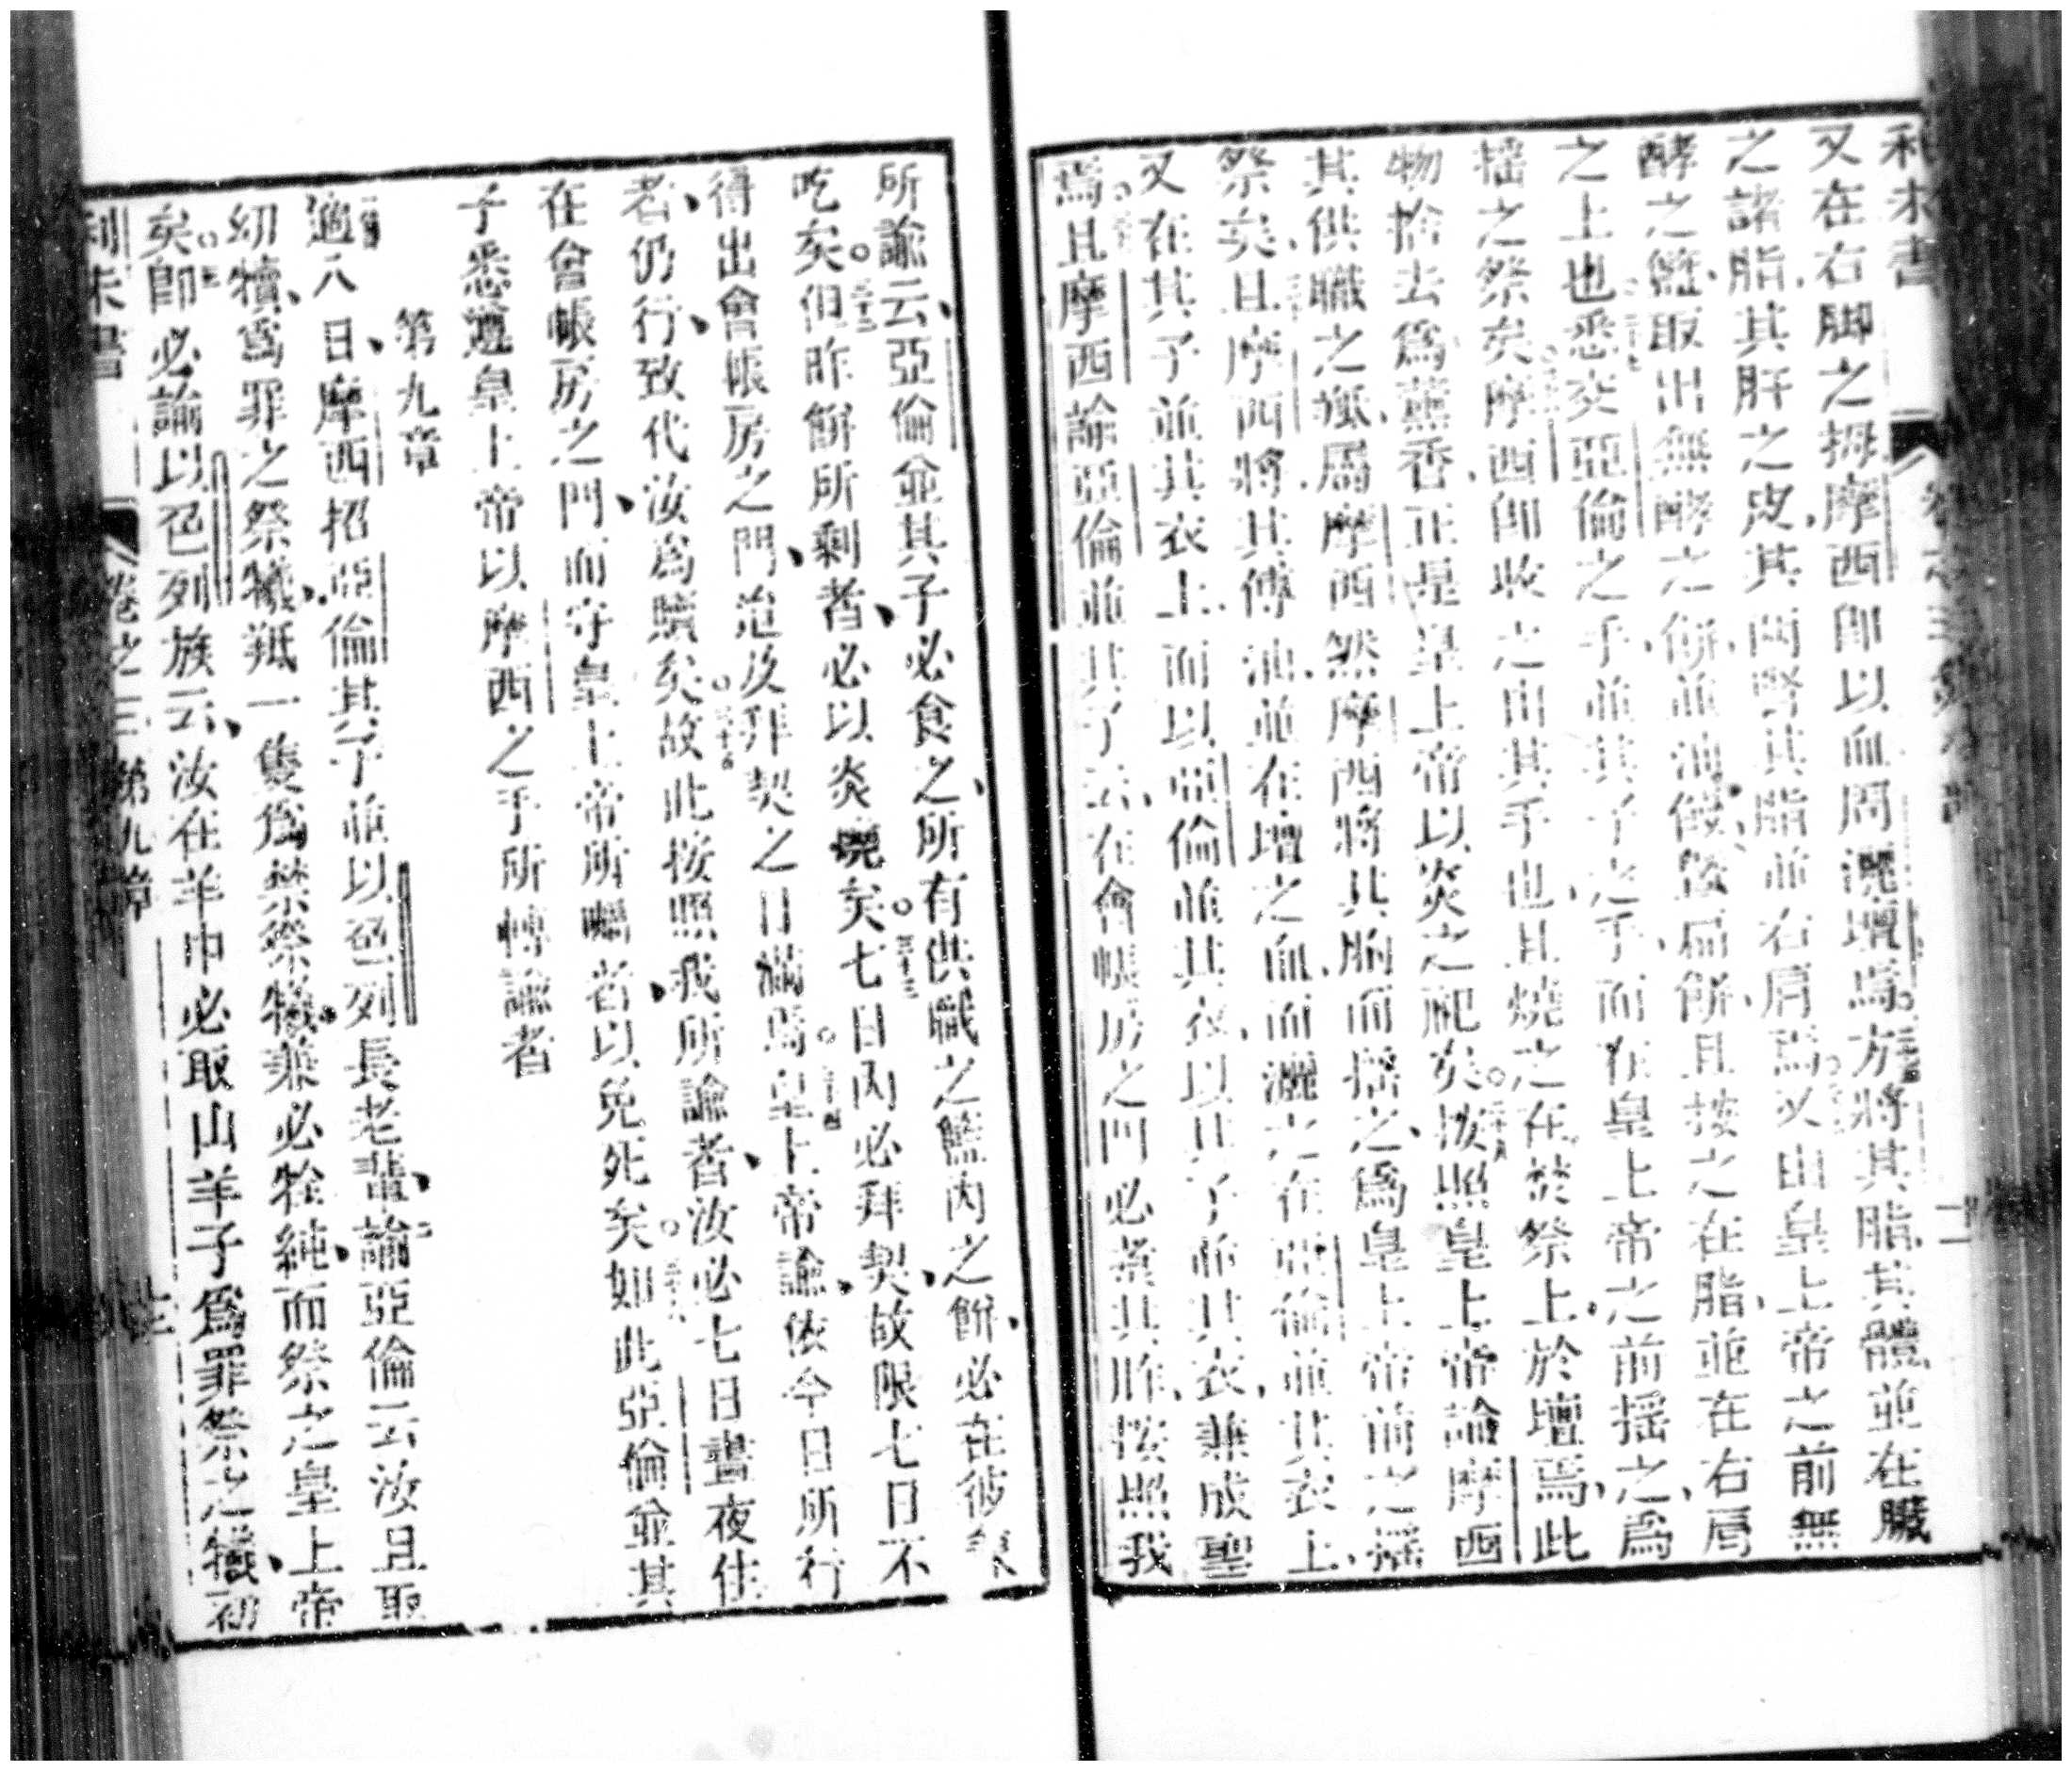 利未書
又在右脚之拇摩西卽以血周灑壇焉方將其脂其體並在臟
之諸脂其肝之皮其兩腎其脂並右肩焉又由皇上帝之前無
酵之籃取出無酵之餅並油餿餐扁餅且按之在脂並在右肩
之上也悉交亞倫之手並其子之手而在皇上帝之前搖之爲
搖之祭矣摩西卽收之由其手也且燒之在焚祭上於壇焉此
物捨去爲薰香正是皇上帝以炎之祀矣按照皇上帝諭摩西
其供職之 屬摩西然摩西將其胸而搖之爲皇上帝前之搖
祭矣且摩西將其傅油並在壇之血而灑之在亞倫並其衣上
又在其子並其衣上而以亞倫並其衣以其子並其衣兼成聖
焉且摩西諭亞倫並其子云在會帳房之門必煮其胙按照我
所諭云亞倫並其子必食之所有供職之籃內之餅必在彼
吃矣但昨餅所剩者必以炎燒矣七日內必拜契故限七日不
得出會帳房之門迨汝拜契之日滿焉皇上帝諭依今日所行
者仍行致代汝爲贖矣故此按照我所諭者汝必七日晝夜住
在會帳房之門而守皇上帝所囑者以免死矣如此亞倫並其
子悉遵皇上帝以摩西之手所傳諭者
第九章
適八日摩西招亞倫其子並以色列長老輩諭亞倫云汝且取
幼犢爲罪之祭犧羝一隻爲焚祭犧兼必牷純而祭之皇上帝
矣卽必諭以色列族云汝在羊中必取山羊子爲罪祭之犧初
利未書 卷之三第九章